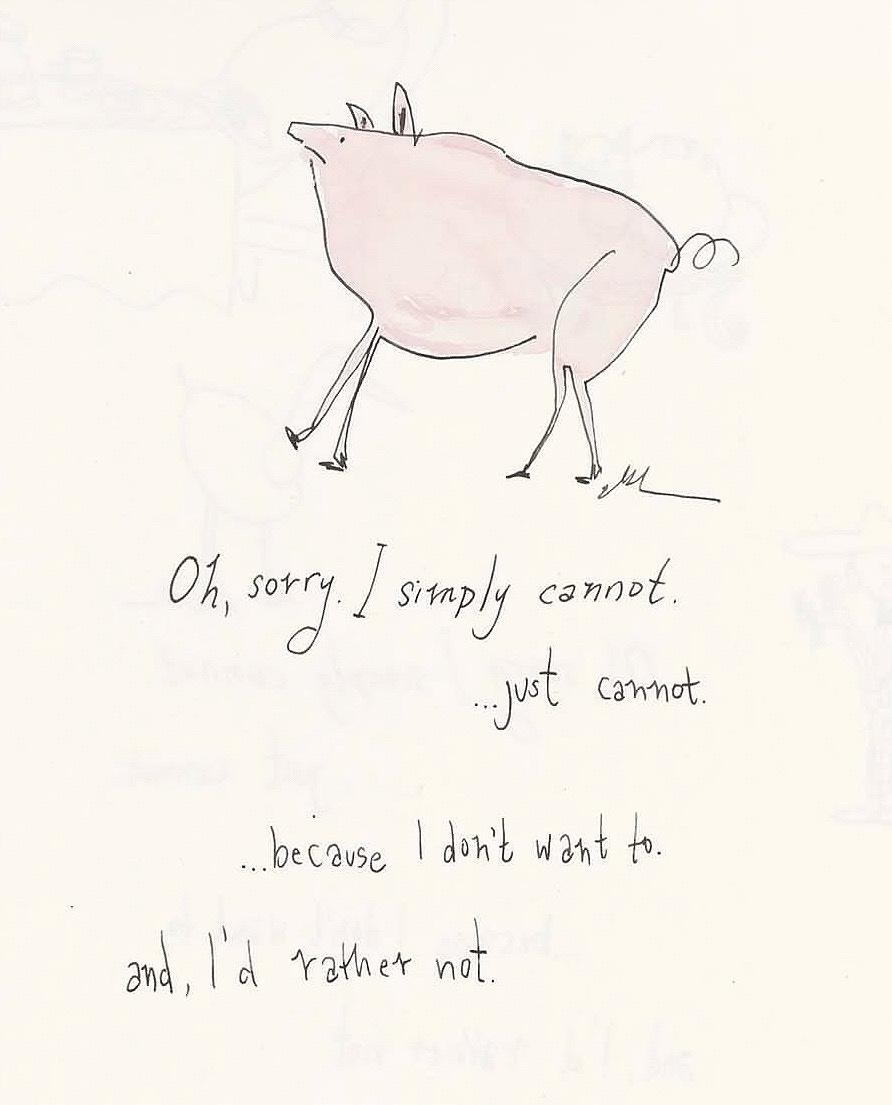 Oh, sorry. I simply cannot.
...just cannot.
...because I don't want to.
and, I'd rather not.